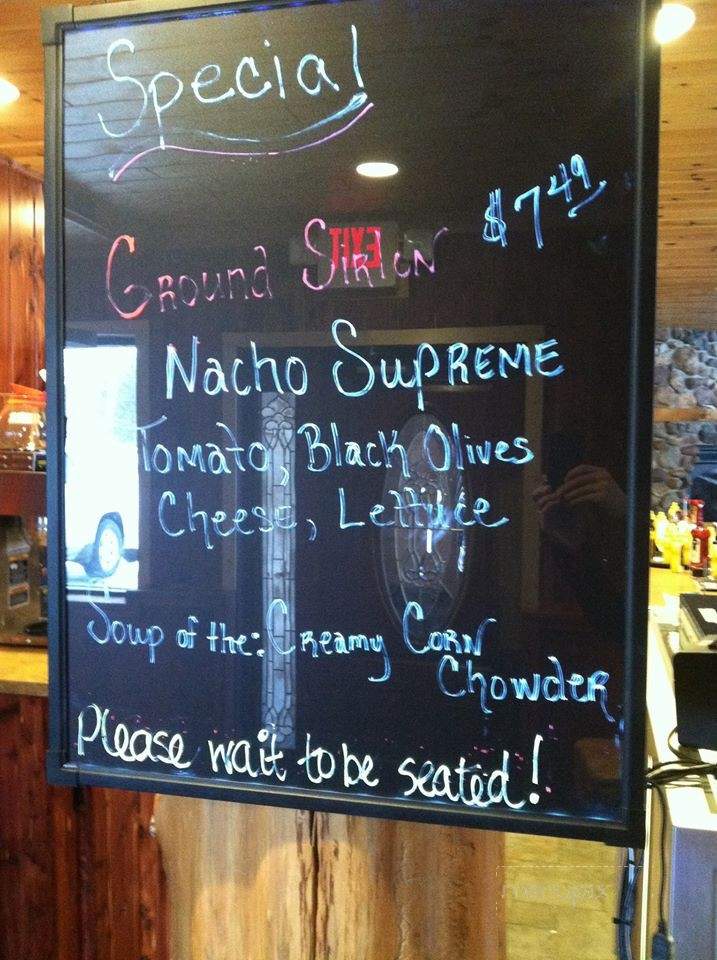 Special
$7 49
Ground Sirlon
EXIT
Nacho Supreme
Tomato, Black Olives
Cheese, Lettuce
Soup of the: Creamy Corn
Chowder
Please wait to be seated!